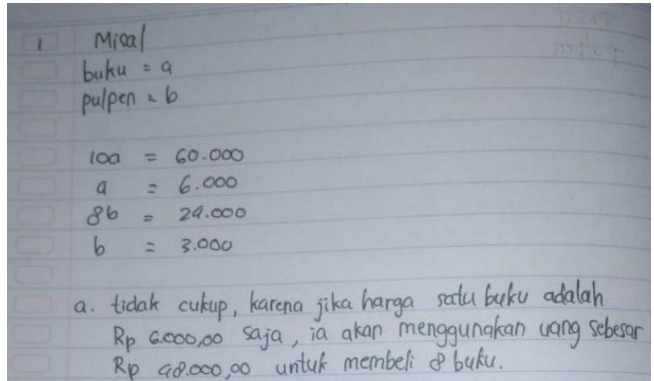 1 Misal
buku = a
pulpen = b
10a = 60.000
a = 6.000
8b = 24.000
b = 3.000
a. tidak cukup, karena jika harga satu buku adalah
Rp 6.000,00 saja, ia akan menggunakan uang sebesar
Rp 48.000,00 untuk membeli 8 buku.